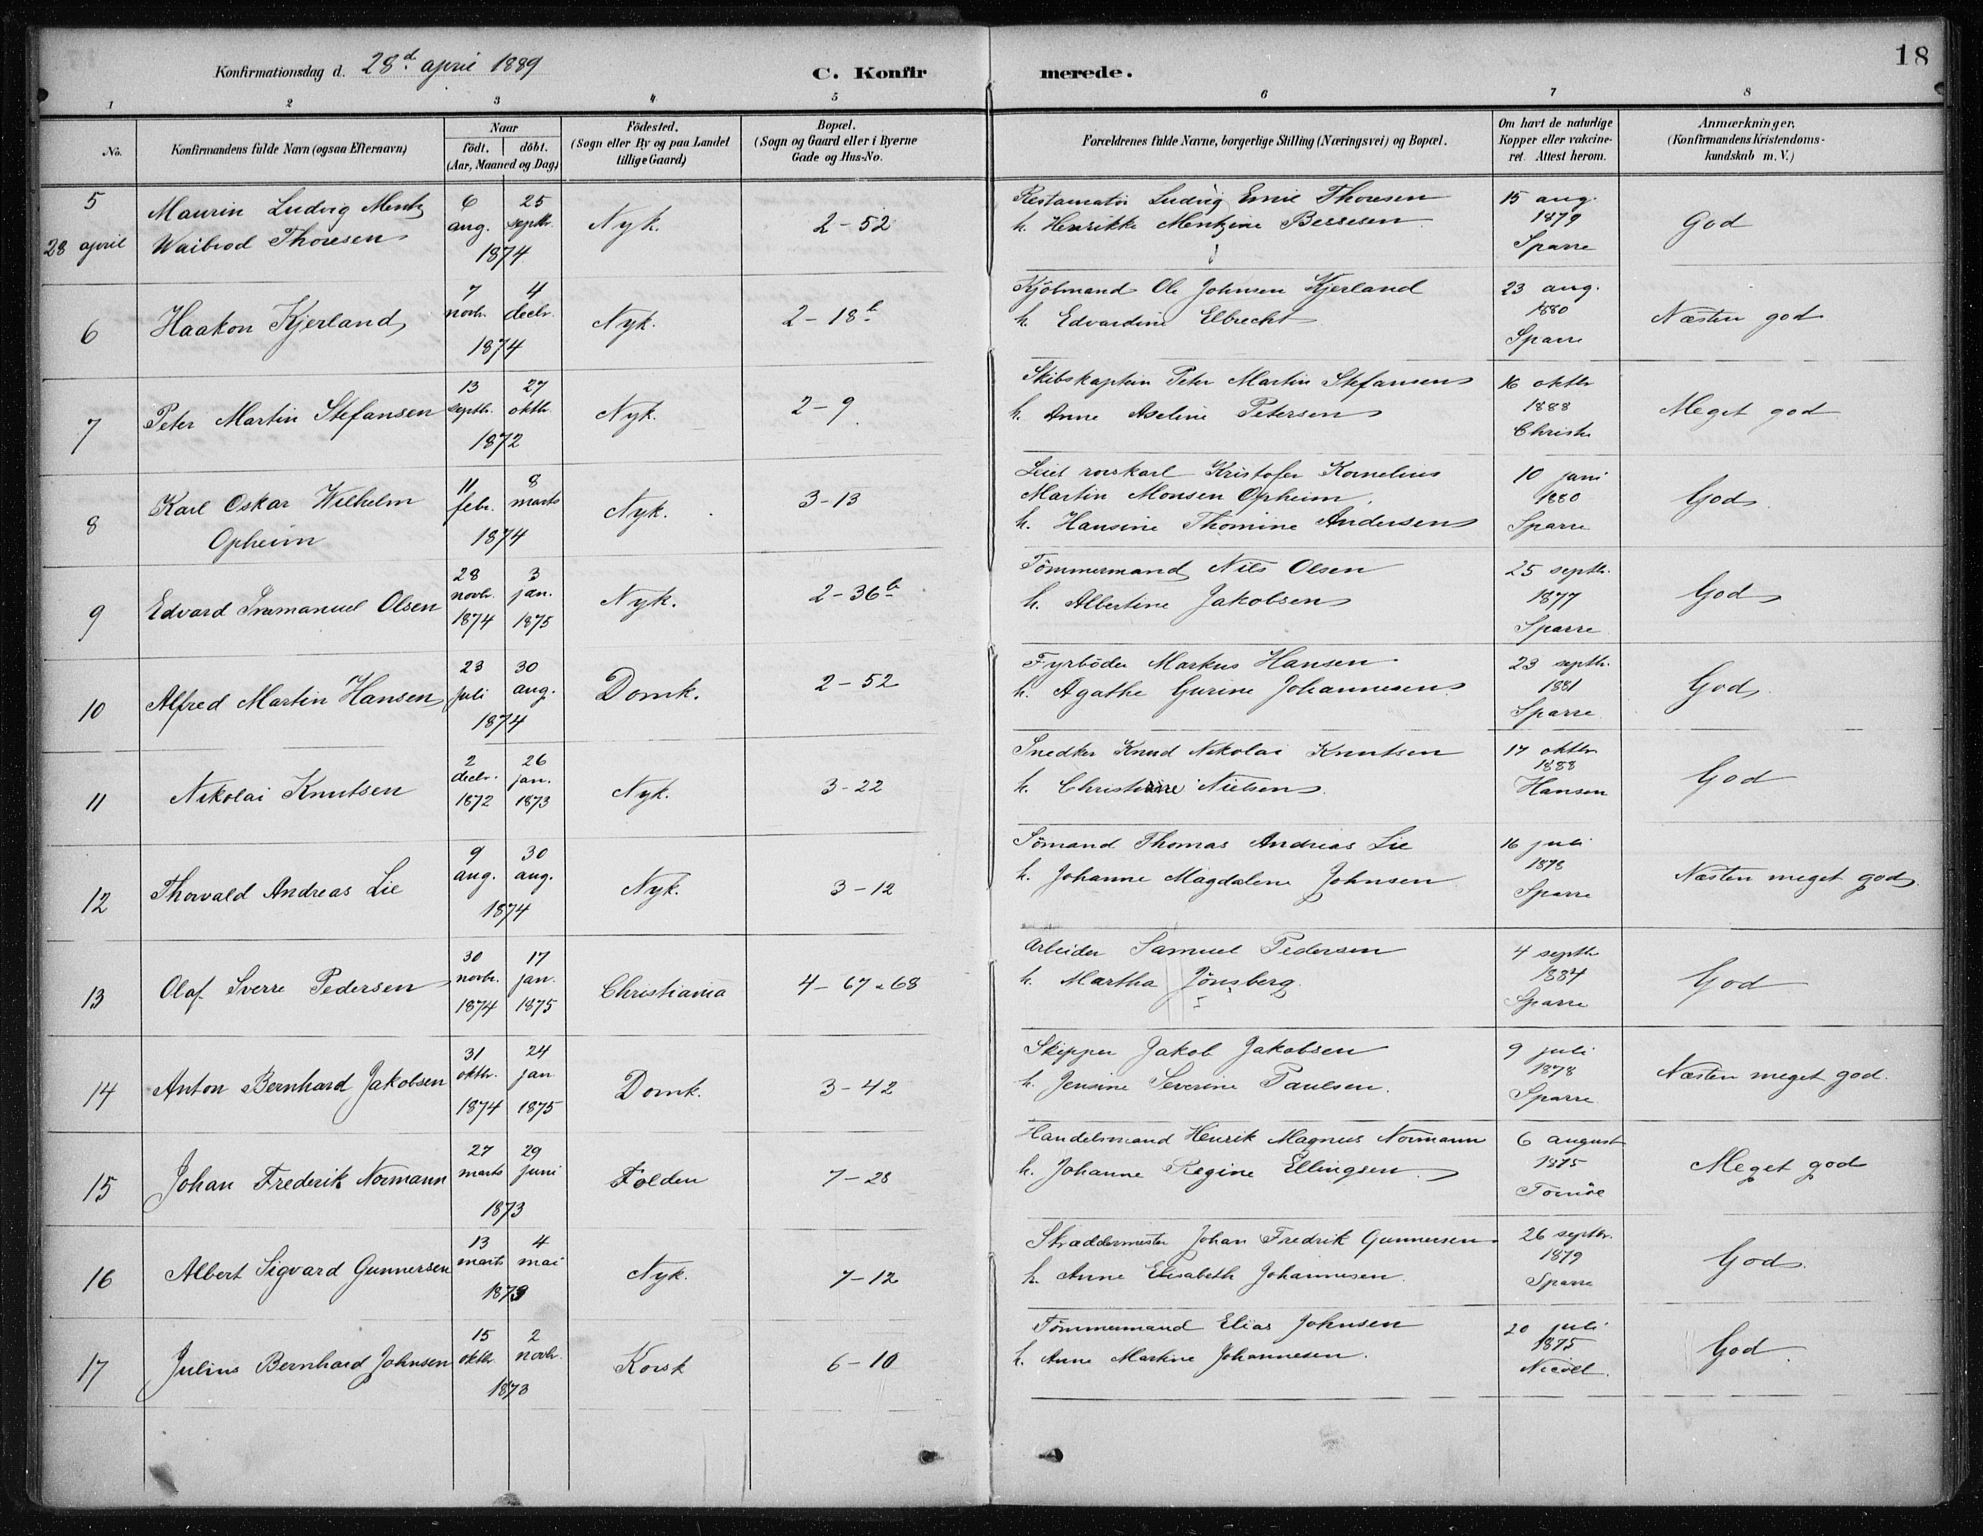 18
Konfirmationsdag d. 28d april 1889
C. Konfirmerede.
1 2 3 4 5 6 7 8
No.
Konfirmandens fulde Navn (ogsaa Efternavn)
Naar
födt. döbt.
(Aar, Maaned og Dag)
Födested.
(Sogn eller By og paa Landet
tillige Gaard)
Bopæl.
(Sogn og Gaard eller i Byerne
Gade og Hus-No.
Forældrenes fulde Navne, borgerlige Stilling (Næringsvei) og Bopæl.
Om havt de naturlige
Kopper eller vakcine-
ret. Attest herom.
Anmærkninger,
(Konfirmandens Kristendoms-
kundskab m. V.)
5
28 april
Maurin Ludvig Mentz
Waibrod Thoresen
6 aug. 25 septbr. 1874
Nyk.
2-52
Ludvig Emil Thoresen
h. Henrikke Mentzine Bessesen
15 aug.
1879
Sparre
God
6
Haakon Kjerland
7 novbr. 4 decbr. 1874
Nyk.
2-18b
Kjöbmand Ole Johnsen Kjerland
h. Edvardine Elbrecht
23 aug.
1880
Sparre
Næsten god
7
Peter Martin Stefansen
13 septbr. 27 oktbr. 1872
Nyk.
2-9
Skibskaptein Peter Martin Stefansen
h. Anne Aseline Petersen
16 oktbr
1888
Christie
Meget god
8
Karl Oskar Wilhelm
Opheim
11 febr. 8 marts 1874
Nyk.
3-13
Kristofer Kornelius
Martin Monsen Opheim
h. Hansine Thomine Andersen
10 juni
1880
Sparre
God
9
Edvard Immanuel Olsen
28 novbr. 1874 3 jan. 1875
Nyk.
2-36b
Tömmermand Nils Olsen
h. Albertine Jakobsen
25 septbr.
1877
Sparre
God
10
Alfred Martin Hansen
23 juli 30 aug. 1874
Domk.
2-52
Fyrböder Markus Hansen
h. Agathe Gurine Johannesen
23 septbr.
1881
Sparre
God
11
Nikolai Knutsen
2 decbr. 1872 26 jan. 1873
Nyk.
3-22
Snedker Knud Nikolai Knutsen
h. Christine Nielsen
17 oktbr
1888
Hansen
God
12
Thorvald Andreas Lie
9 aug. 30 aug. 1874
Nyk.
3-12
Sömand Thomas Andreas Lie
h. Johanne Magdalene Johnsen
16 juli
1878
Sparre
Næsten meget god
13
Olaf Sverre Pedersen
30 novbr. 1874 17 jan. 1875
Christiania
4-67 & 68
Arbeider Samuel Pedersen
h. Martha Jönsberg
4 septbr
1884
Sparre
God
14
Anton Bernhard Jakobsen
31 oktbr. 1874 24 jan 1875
Domk.
3-42
Skipper Jakob Jakobsen
h. Jensine Severine Paulsen
9 juli
1878
Sparre
Næsten meget god.
15
Johan Frederik Normann
27 marts 29 juni 1873
Folden
7-28
Handelsmand Henrik Magnus Normann
h. Johanne Regine Ellingsen
6 august
1875
Meget god
16
Albert Sigvard Gunnersen
13 marts 4 mai 1873
Nyk.
7-12
Skræddermester Johan Fredrik Gunnersen
h. Anne Elisabeth Johannesen
26 septbr.
1879
Sparre
God
17
Julius Bernhard Johnsen
15 oktbr 2 novbr. 1873
Korsk
6-10
Tömmermand Elias Johnsen
h. Anne Martine Johannesen.
20 juli
1875
Nicoll.
God